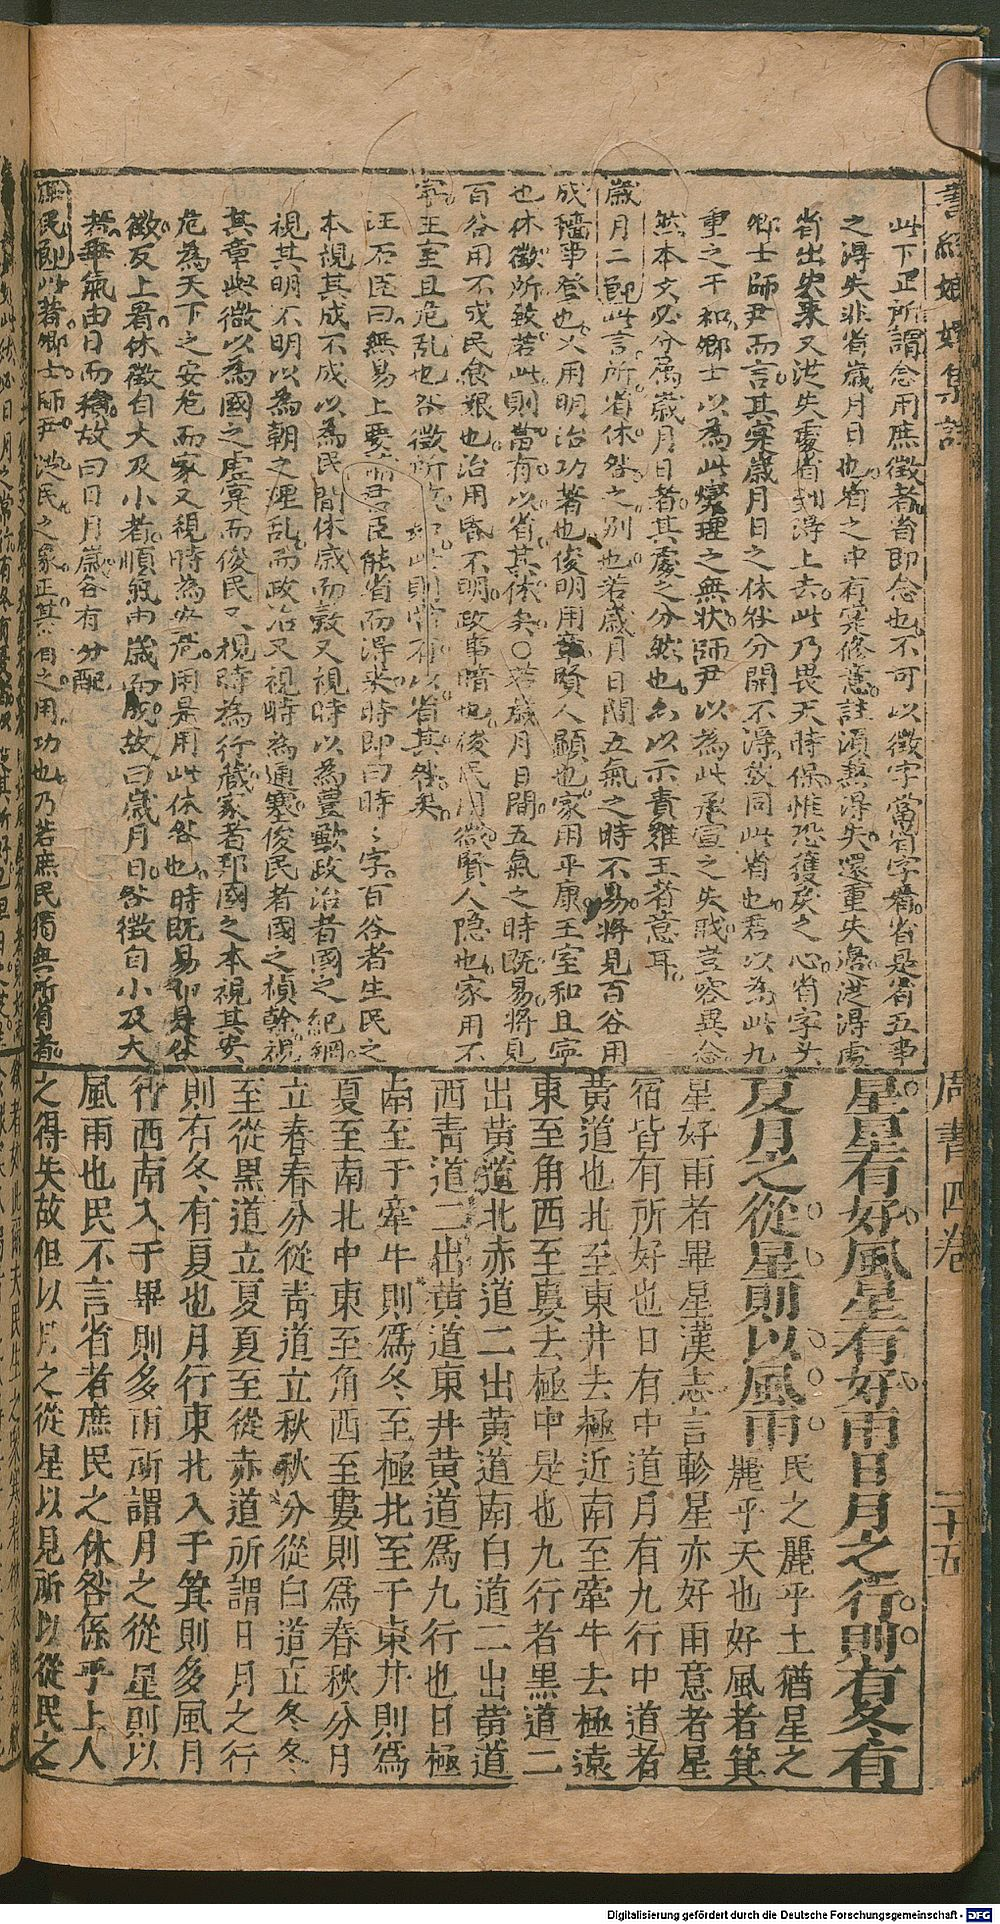 書經娘嬛集註
此下正所謂念用庶徵者省即念也不可以徵字當省字看省是省五事
之得失非省歲月日也省之中有寔修意註須兼得失還重失邊從得處
省出安來又從失處省到得上去此乃畏天時保惟恐獲戾之心省字頭
卿士師尹而言其寔歲月日之休咎分開不得故同此省也君以為此九
重之干和卿士以為此燮理之無狀師尹以為此承宣之失職豈容異念
然本文必分屬歲月日者其處之分然也亦以示責難王者意耳
歲月二節此言所省休咎之別也若歲月日間五氣之時不易將見百谷用
成穡事登也乂用明治功著也俊明用章賢人顯也家用平康王室和且寧
也休徵所致若此則當有以省其休矣〇若歲月日間五氣之時既易將見
百谷用不成民食艱也治用昏不明政事暗也俊民用微賢人隱也家用不
寧王室且危乱也咎徵所 則 有以省其咎矣
汪石臣曰無易上要 君臣能省而得來時即曰時字百谷者生民之
本視其成不成以為民間休戚而穀又視時以為豐歉政治者國之紀綱
視其明不明以為朝之理乱而政治又視時為通塞俊民者國之楨幹視
其章與微以為國之虛寔而俊民又視時為行藏家者邦國之本視其安
危為天下之安危而家又視時為安危用是用此休咎也時既易即是咎
徵反上看休徵自大及小者順氣由歲而成故曰歲月日咎徵自小及大
者乖氣由日而積故曰日月歲各有分配
庶民節此著卿士師尹從民之象正其省之用功也乃若庶民獨無所省者
周書四卷
二十五
星星有好風星有好雨日月之行則有冬有
夏月之從星則以風雨 民之麗乎土猶星之
麗乎天也好風者箕
星好雨者畢星漢志言軫星亦好雨意者星
宿皆有所好也日有中道月有九行中道者
黃道也北至東井去極近南至牽牛去極遠
東至角西至婁去極中是也九行者黑道二
出黃道北赤道二出黃道南白道二出黃道
西青道二出黃道東井黃道為九行也日極
南至于牽牛則為冬至極北至于東井則為
夏至南北中東至角西至婁則為春秋分月
立春春分從青道立秋秋分從白道立冬冬
至從黑道立夏夏至從赤道所謂日月之行
則有冬有夏也月行東北入于箕則多風月
行西南入于畢則多雨所謂月之從星則以
風雨也民不言省者庶民之休咎係乎上人
之得失故但以月之從星以見所以從民之
Digitalisierung gefördert durch die Deutsche Forschungsgemeinschaft - DFG